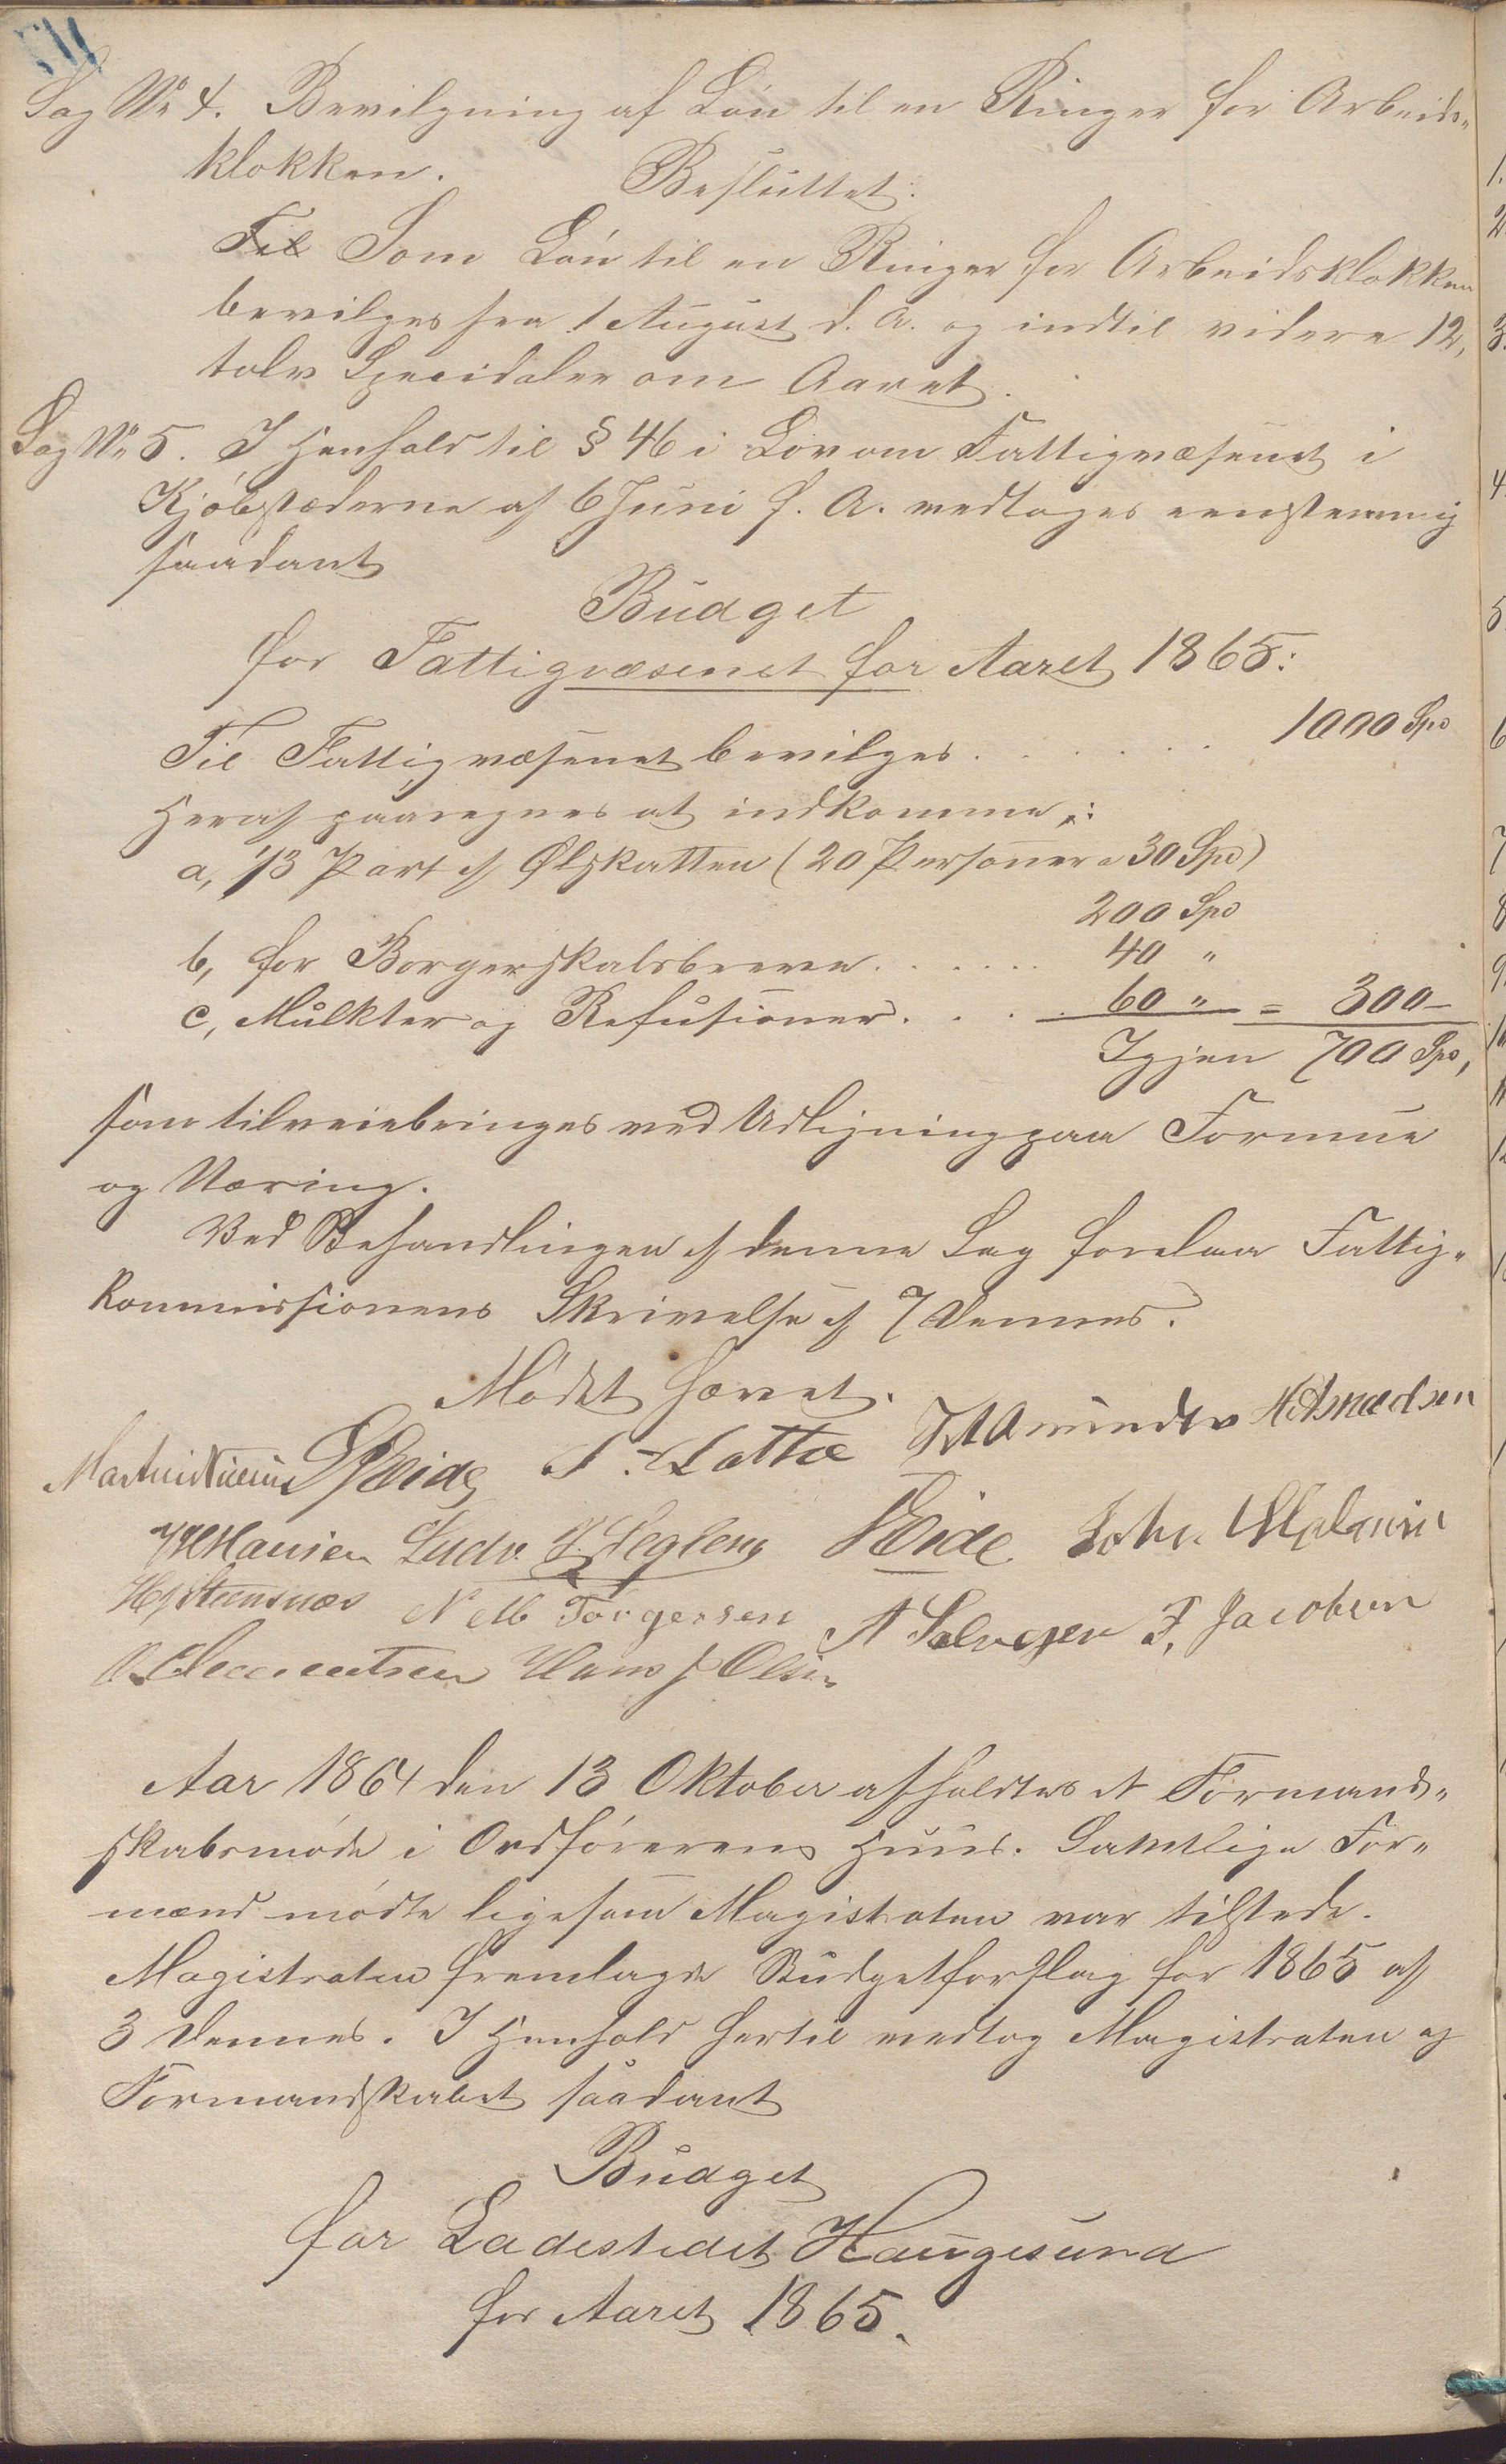 Sag No 4. Bevilgning af Løn til en Ringer for Arbeids-
klokken.
Besluttet:
Til Som Løn til en Ringer for Arbeidsklokken
bevilges fra 1 August d. A. og indtil videre 12,
tolv Speciedaler om Aaret.
Sag No 5. I Henhold til § 46 i Lov om Fattigvæsenet i
Kjøbstæderne af 6 Juni f. A. vedtages eenstemmig
saadant
Budget
for Fattigvæsenet for Aaret 1865:
Til Fattigvæsenet bevilges . . . . . . 1000 Spd
Heraf paaregnes at indkomme:
a, 1/3 Part af Ølskatten (20 Personer a 30 Spd)
200 Spd
b, for Borgerskabsbreve . . . . . . 40 "
c, Mulkter og Refusioner . . . . 60 " = 300 –
Igjen 700 Spd,
som tilveiebringes ved Udligning paa Formue
og Næring.
Ved Behandlingen af denne Sag forelaa Fattig-
kommissionens Skrivelse af 7 dennes.
Mødet hævet.
Eide
Hansen Ludv. Eide John
N Torgersen
F. Jacobsen
Hans J Olsen
Aar 1864 den 13 Oktober afholdtes et Formand-
skabsmøde i Ordførerens Huus. Samtlige For-
mænd mødte ligesom Magistraten var tilstede.
Magistraten fremlagde Budgetforslag for 1865 af
3 dennes. I Henhold hertil vedtog Magistraten og
Formandskabet saadant
Budget
for Ladestedet Haugesund
for Aaret 1865.